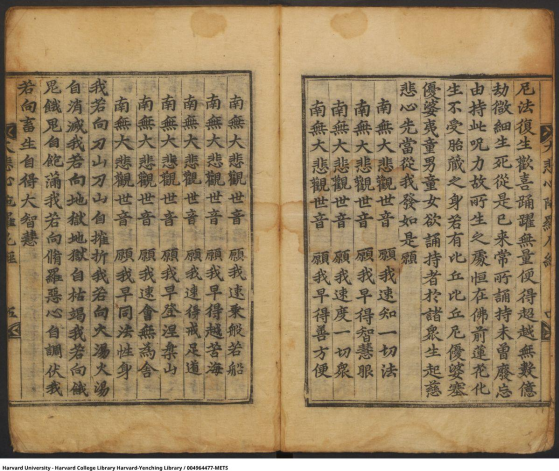 尼法復生歡喜踊躍無量便得超越無數億
劫微細生死從是已來常所誦持未曾廢忘
由持此呪力故所生之處恒在佛前蓮花化
生不受胎藏之身若有比丘比丘尼優婆塞
優婆夷童男童女欲誦持者於諸衆生起慈
悲心先當從我發如是願
南無大悲觀世音 願我速知一切法
南無大悲觀世音 願我早得智慧眼
南無大悲觀世音 願我速度一切衆
南無大悲觀世音 願我早得善方便
南無大悲觀世音 願我速乘般若船
南無大悲觀世音 願我早得越苦海
南無大悲觀世音 願我速得戒足道
南無大悲觀世音 願我早登涅槃山
南無大悲觀世音 願我速會無爲舍
南無大悲觀世音 願我早同法性身
我若向刀山刀山自摧折我若向火湯火湯
自消滅我若向地獄地獄自枯竭我若向餓
鬼餓鬼自飽滿我若向脩羅惡心自調伏我
若向畜生自得大智慧
Harvard University - Harvard College Library Harvard-Yenching Library / 004964477-METS